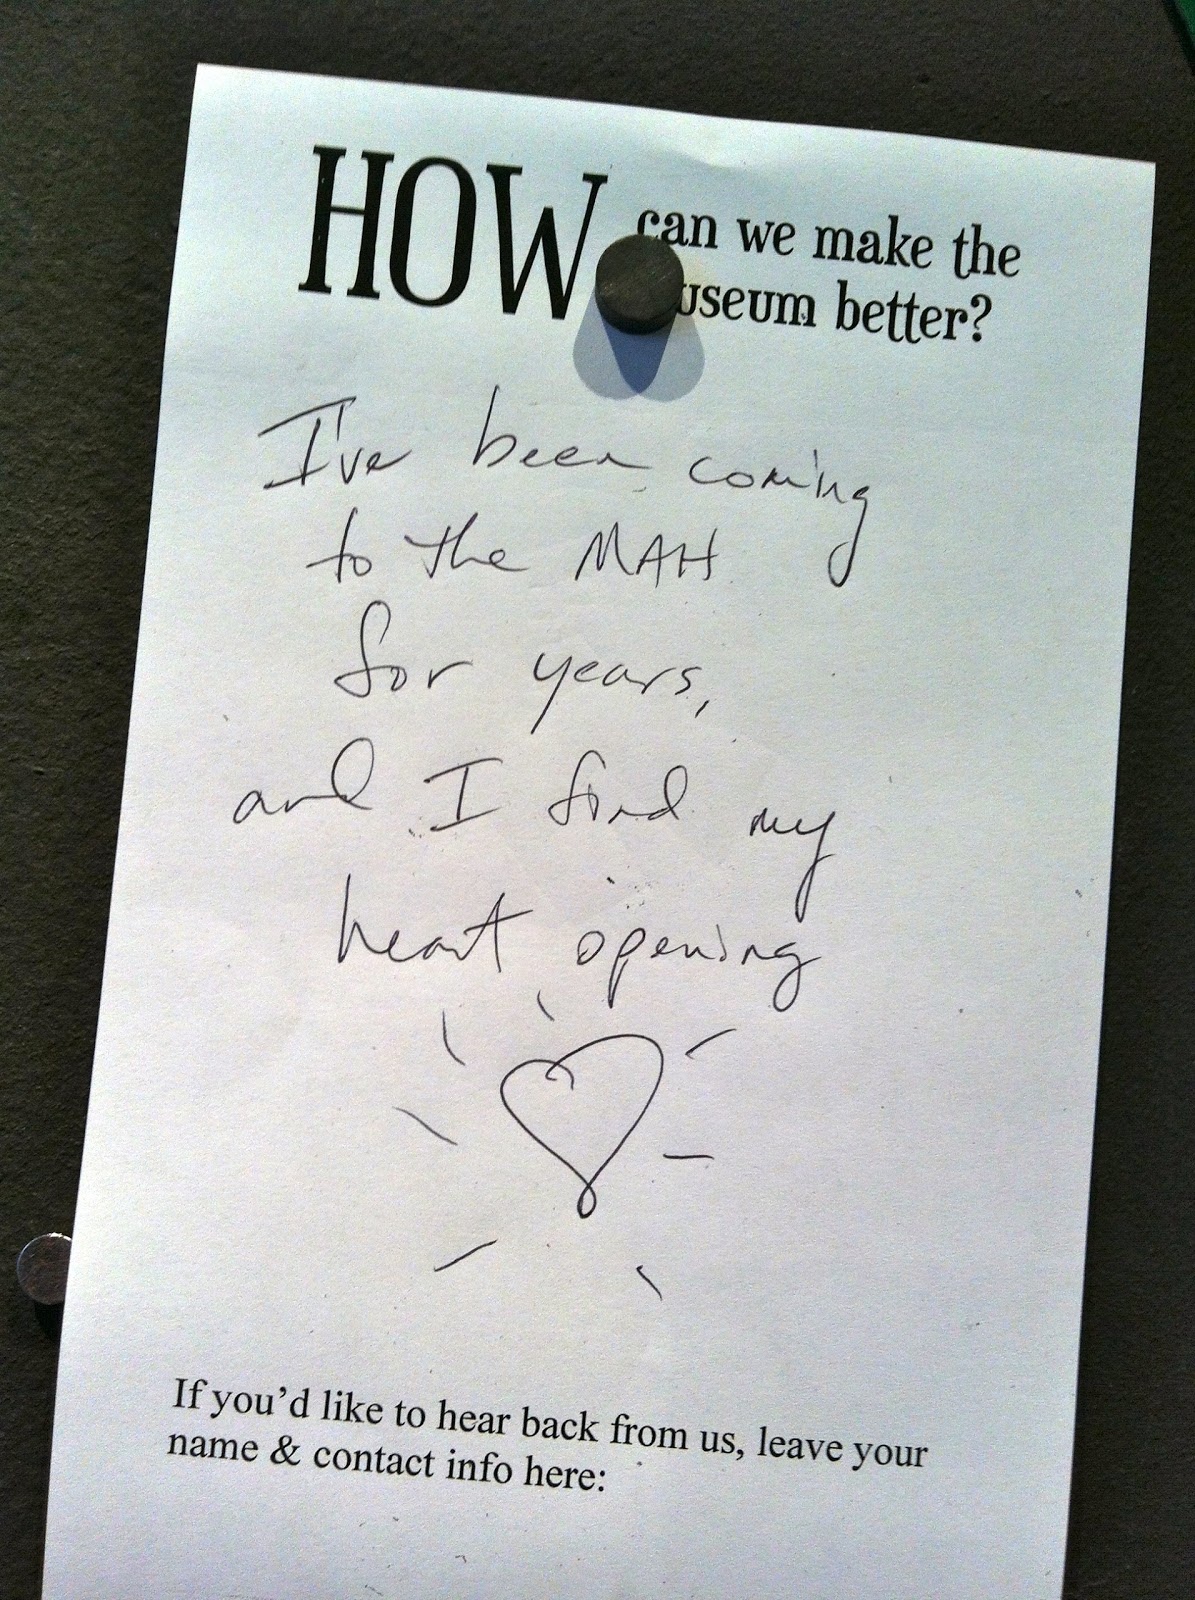 HOW can we make the
useum better?
I've been coming
to the MAH
for years,
and I find my
heart opening
If you'd like to hear back from us, leave your
name & contact info here: